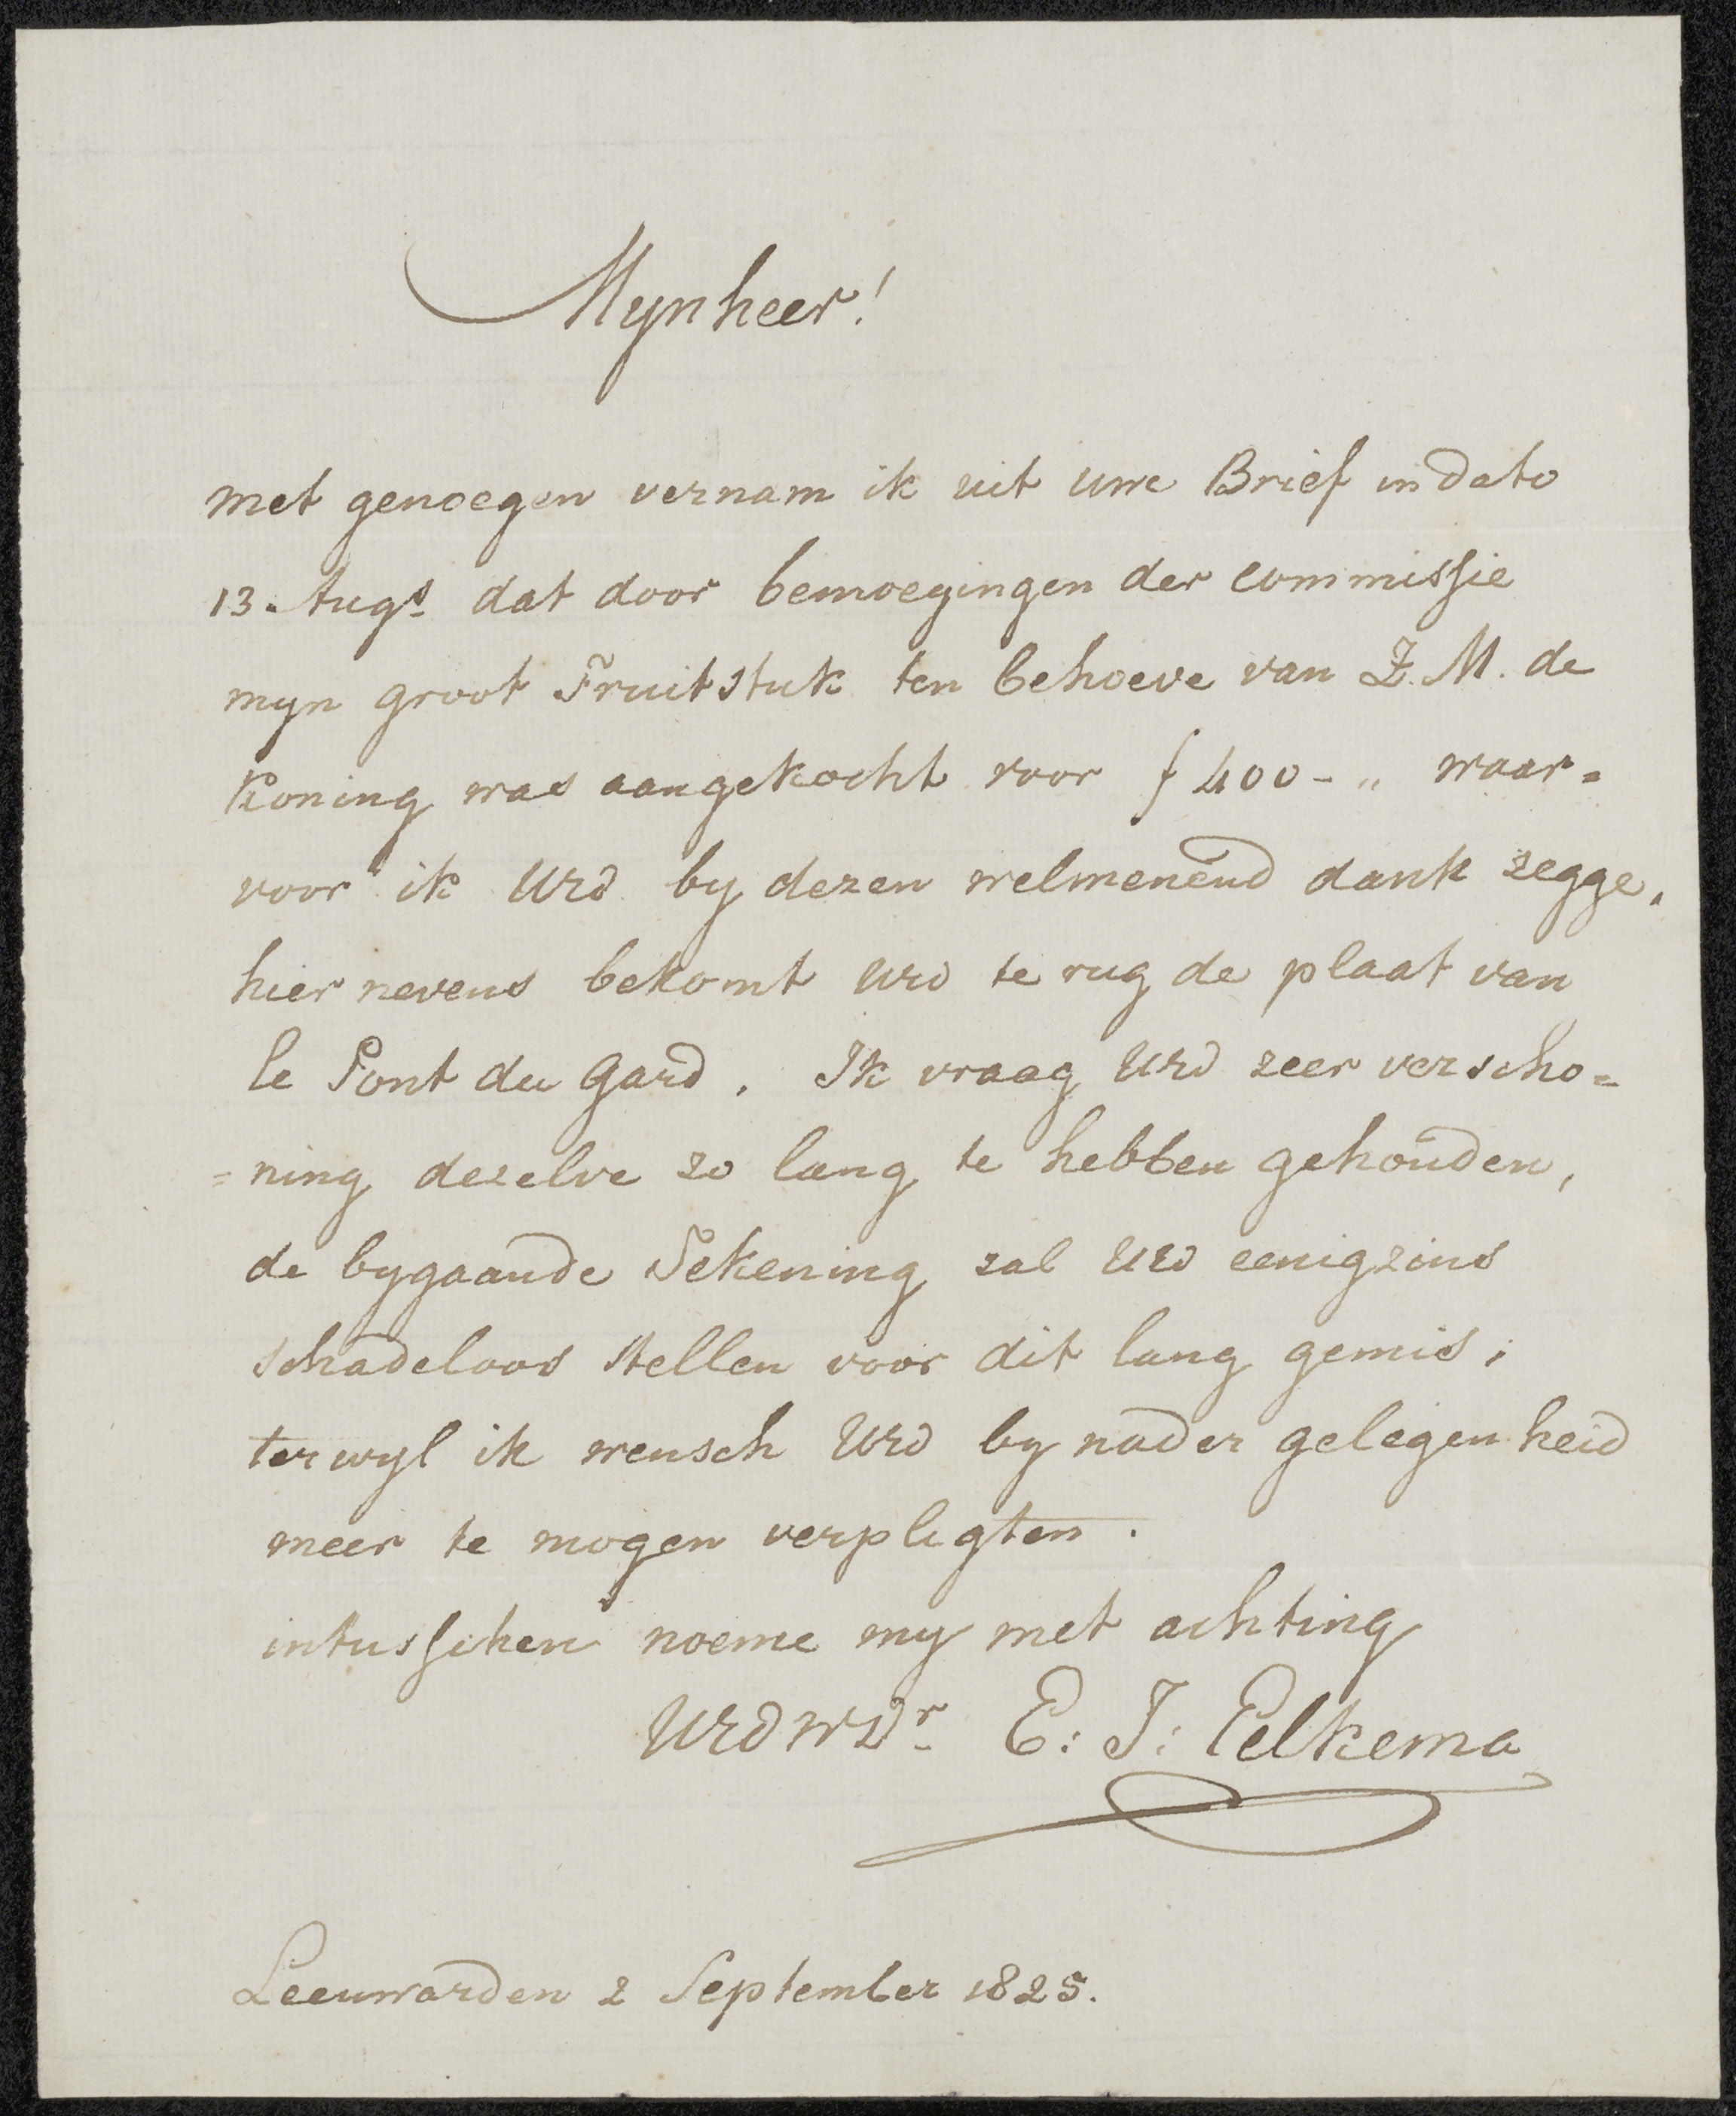 Mynheer!
met genoegen vernam ik uit uwe Brief in dato
13. Augs dat door bemoegingen der commissie
myn groot Fruitstuk ten behoeve van Z. M. de
Koning was aangekocht voor f 400 - „ waar=
voor ik UEd by dezen welmenend dank zegge,
hier nevens bekomt UEd te rug de plaat van
le Pont du Gard. Ik vraag UEd zeer verscho=
=ning dezelve zo lang te hebben gehouden,
de bygaande Tekening zal UEd eenigzins
schadeloos stellen voor dit lang gemis;
terwyl ik wensch UEd by nader gelegenheid
meer te mogen verpligten.
intusschen noeme my met achting
UEdwDr E: J: Eelkema
Leeuwarden 2 September 1825.